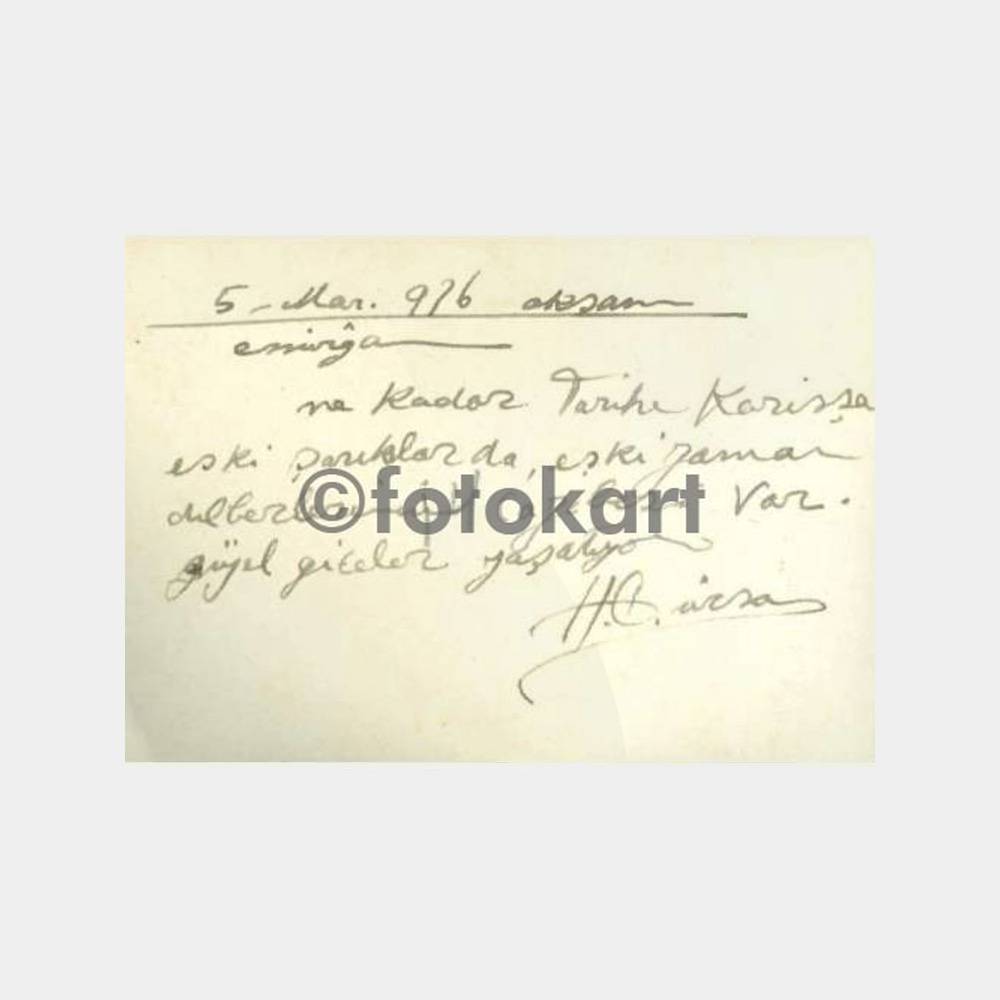 5 - Mar. 976 akşam
emirgân
ne kadar Tarihe Karışsa
eski şarkılarda, eski zaman
©fotokart
dilberleri var.
güzel geceler yaşatıyor
H.C.